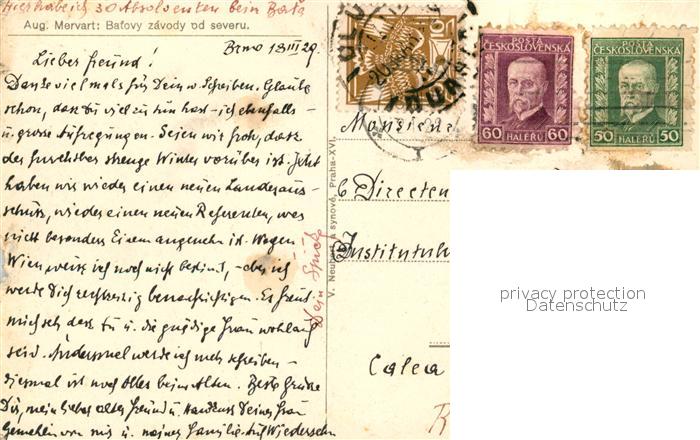 Hier habe ich 30 Absolventen beim Baťa
Aug. Mervart: Baťovy závody od severu.
Brno 18 III 29.
Lieber Freund!
Danke vielmals für Dein w. Schreiben. Glaube
schon, dass Du viel zu tun hast - ich ebenfalls
u. grosse Aufregungen. Seien wir froh, dass
der furchtbar strenge Winter vorüber ist. Jetzt
haben wir wieder einen neuen Landesaus-
schuss, wieder einen neuen Referenten, was
nicht besonders Einem angenehm ist. Wegen
Wien weiss ich noch nicht bestimmt, aber ich
werde Dich rechtzeitig benachrichtigen. Es freut
mich sehr dass Du u. die gnädige Frau wohlauf
seid. Andersmal werde ich mehr schreiben -
diesmal ist noch Alles beim Alten. Beste Grüsse
Dir, mein lieber alter Freund u. Handkuss Deiner Frau
Gemahlin von mir u. meiner Familie. Auf Wiedersehn
Dein
V. Neubert a synové, Praha-XVI.
POSTA
ČESKOSLOVENSKA
60 HALERU 60
POSTA
ČESKOSLOVENSKA
50 HALERU 50
Monsieur
Directeu
Institutulu
Calea
privacy protection
Datenschutz